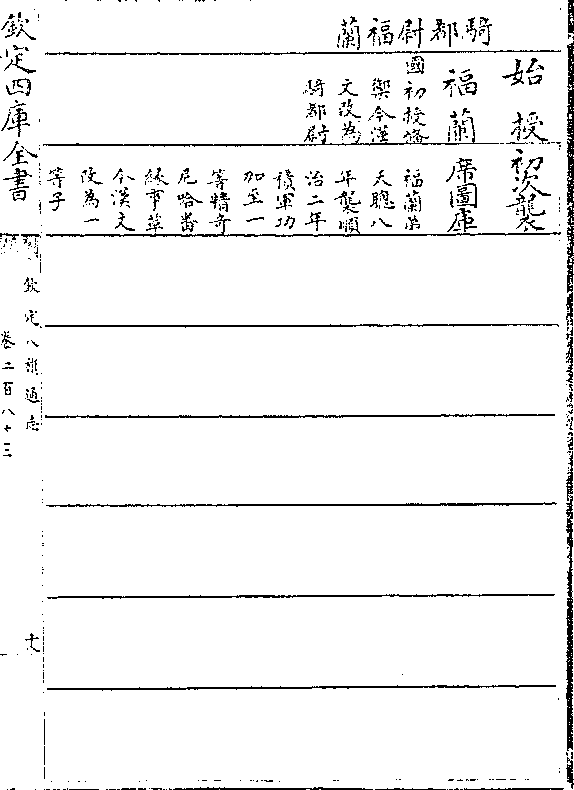 騎都尉福蘭
始授
福蘭
國初授備
禦今漢
文改為
騎都尉
初次襲
席圖庫
福蘭弟
天聰八
年襲順
治二年
積軍功
加至一
等精奇
尼哈番
緣事革
今漢文
改為一
等子
欽定四庫全書
欽定八旗通志
卷二百八十三